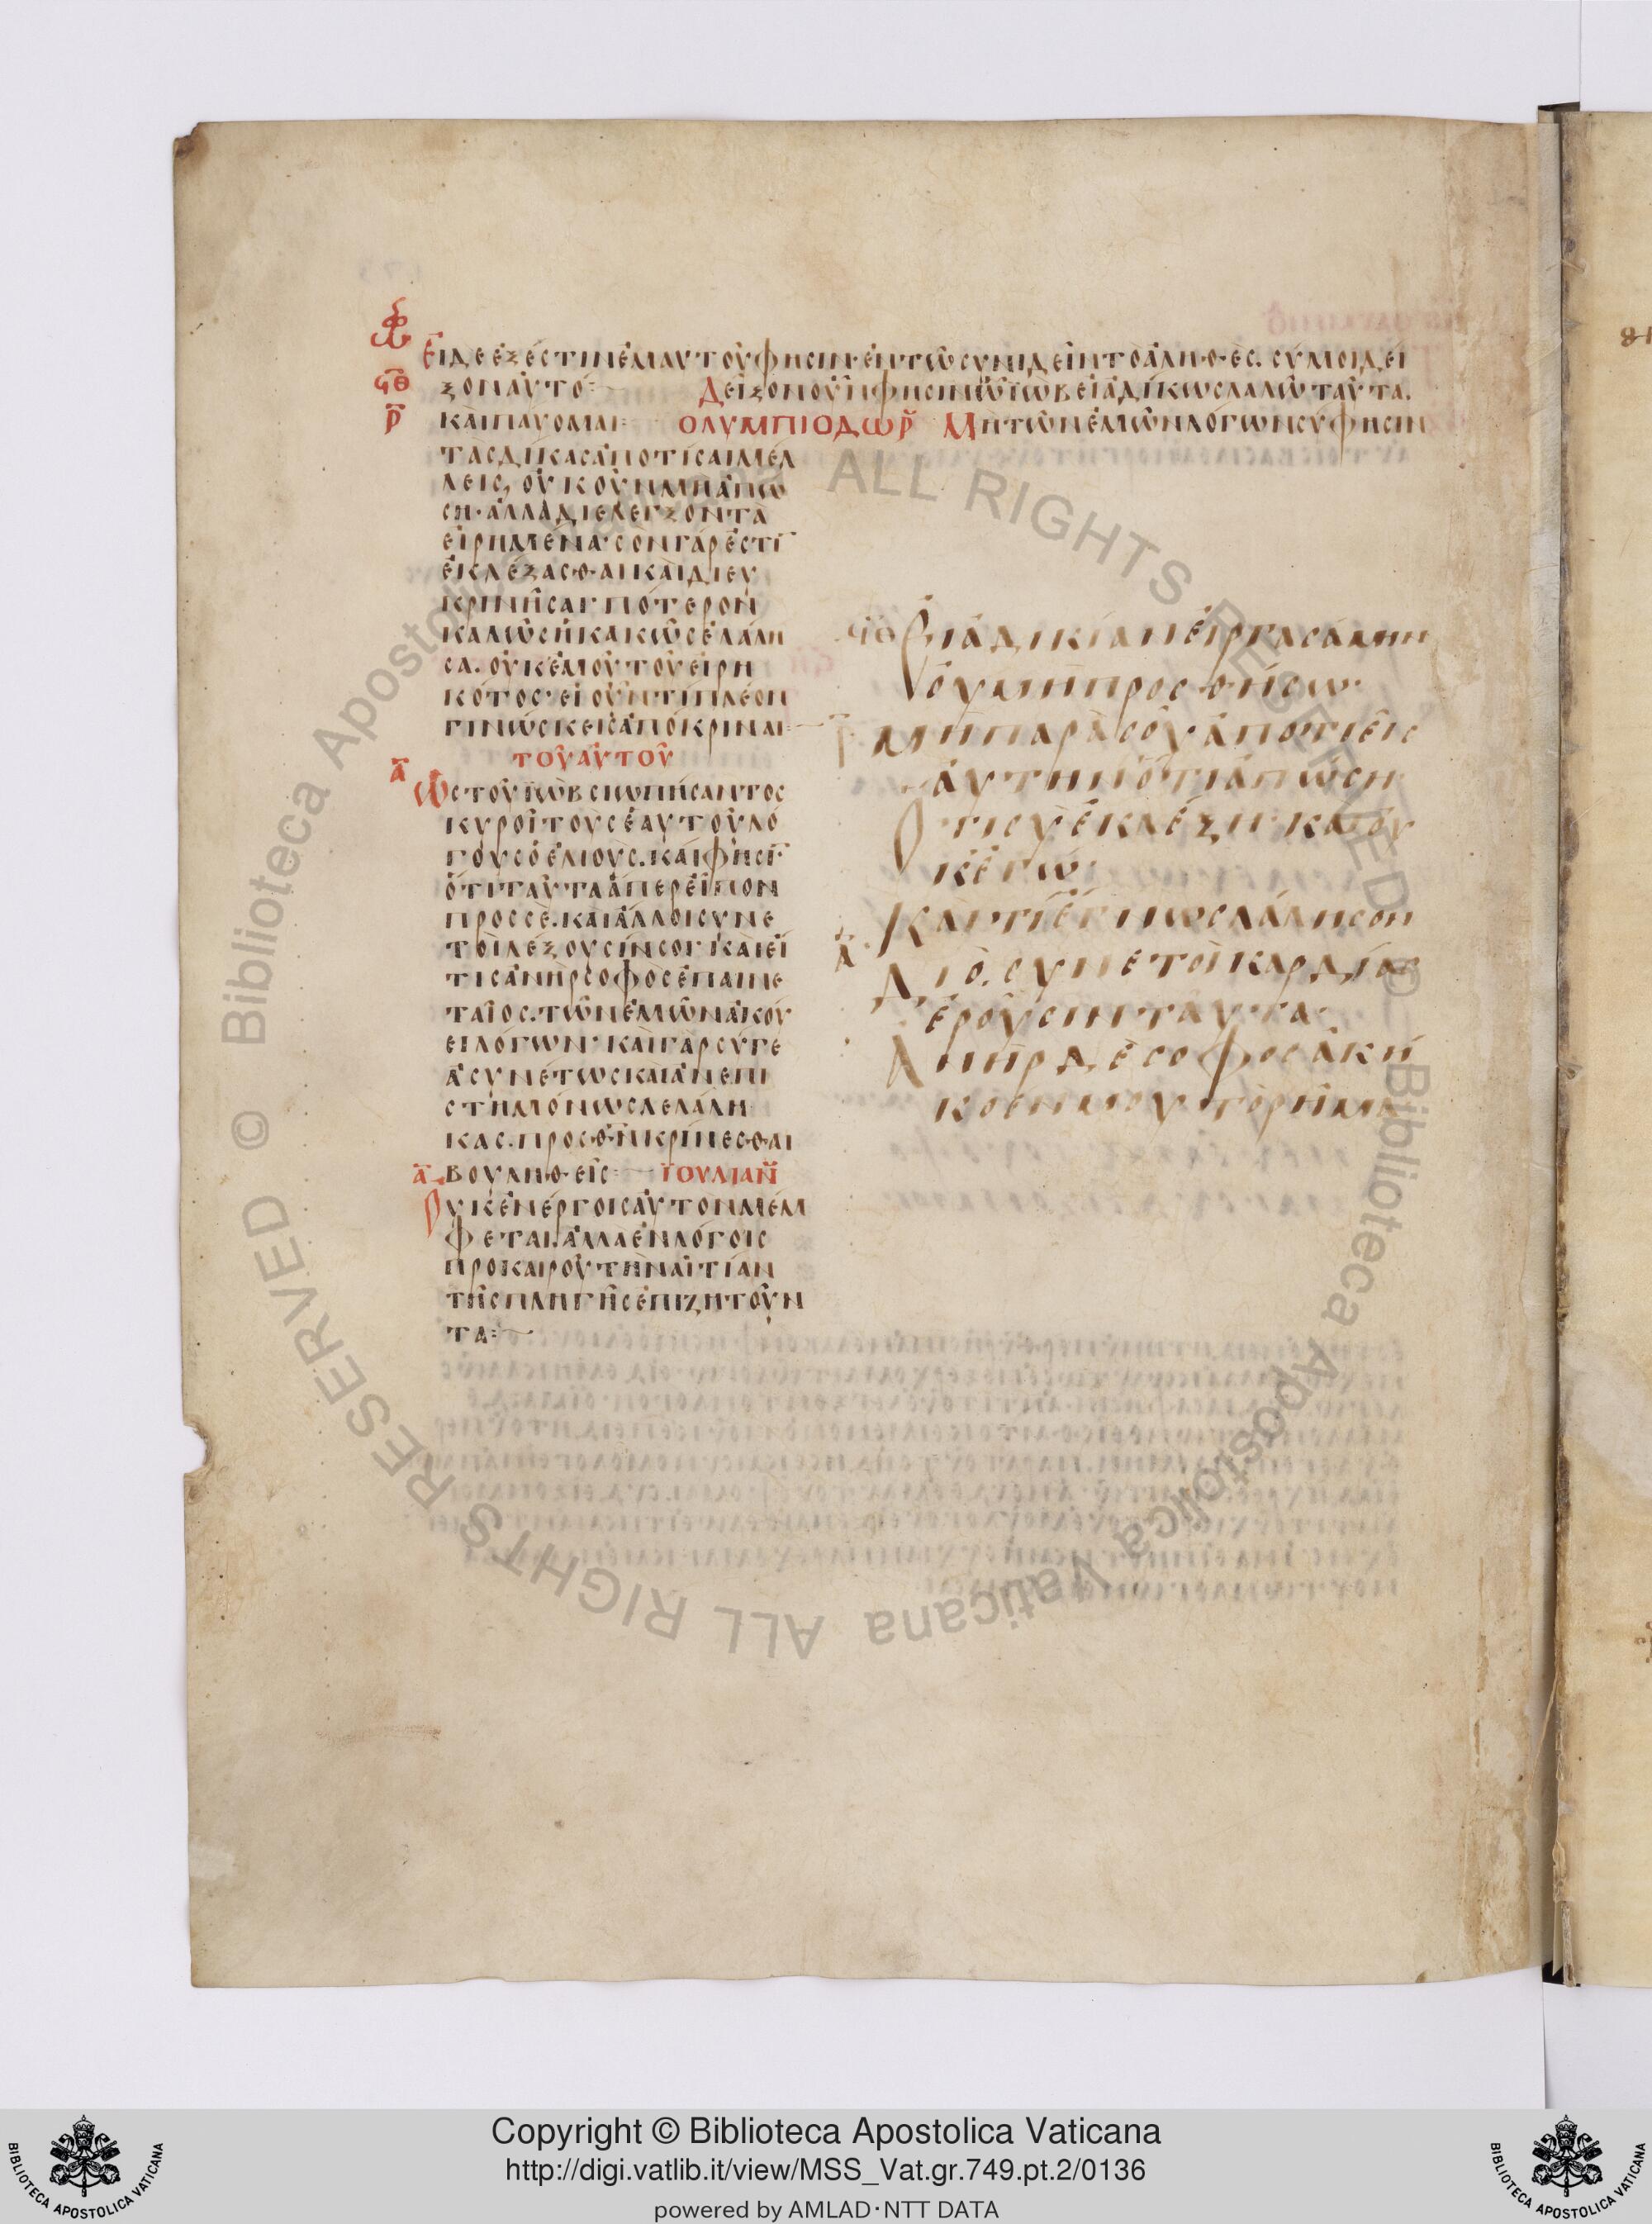 ΕΙΔΕΕΞΕΣΤΙΝΕΜΑΥΤΟΥΦΗΣΙΝΕΝΤΩΣΥΝΙΔΕΙΝΤΟΑΛΗΘΕΣ. ΣΥΜΟΙΔΕΙ
ϟΘ ΞΟΝΑΥΤΟ: ΔΕΙΞΟΝΟΥΝΦΗΣΙΝΩΪΩΒΕΙΑΔΙΚΩΣΛΑΛΩΤΑΥΤΑ.
Ρ ΚΑΙΠΑΥΟΜΑΙ: ΟΛΥΜΠΙΟΔΩΡ ΜΗΤΩΝΕΜΩΝΛΟΓΩΝΣΥΦΗΣΙΝ
ΤΑΣΔΙΚΑΣΑΠΟΤΙΣΑΙΜΕΛ
ΛΕΙΣ, ΟΥΚΟΥΝΜΗΑΠΩ
ΣΗ· ΑΛΛΑΔΙΕΛΕΓΞΟΝΤΑ
ΕΙΡΗΜΕΝΑ· ΣΟΝΓΑΡΕΣΤΙ
ΕΚΛΕΞΑΣΘΑΙΚΑΙΔΙΕΥ
ΚΡΙΝΗΣΑΙ· ΠΟΤΕΡΟΝ
ΚΑΛΩΣΗΚΑΚΩΣΕΛΑΛΗ
ΣΑ. ΟΥΚΕΜΟΥΤΟΥΕΙΡΗ
ΚΟΤΟΣ· ΕΙΟΥΝΤΙΠΛΕΟΝ
ΓΙΝΩΣΚΕΙΣΑΠΟΚΡΙΝΑΙ:
ΤΟΥΑΥΤΟΥ
Α ΩΣΤΟΥΪΩΒΣΙΩΠΗΣΑΝΤΟΣ
ΚΥΡΟΙΤΟΥΣΕΑΥΤΟΥΛΟ
ΓΟΥΣΟΕΛΙΟΥΣ. ΚΑΙΦΗΣΙ·
ΟΤΙΤΑΥΤΑΑΠΕΡΕΙΠΟΝ
ΠΡΟΣΣΕ. ΚΑΙΑΛΛΟΙΣΥΝΕ
ΤΟΙΛΕΞΟΥΣΙΝΣΟΙ· ΚΑΙΕΙ
ΤΙΣΑΝΗΡΣΟΦΟΣΕΠΑΙΝΕ
ΤΑΙΟΣ. ΤΩΝΕΜΩΝΑΚΟΥ
ΕΙΛΟΓΩΝ· ΚΑΙΓΑΡΣΥΓΕ
ΑΣΥΝΕΤΩΣΚΑΙΑΝΕΠΙ
ΣΤΗΜΟΝΩΣΛΕΛΑΛΗ
ΚΑΣ. ΠΡΟΣΘΗΚΡΙΝΕΣΘΑΙ
Α ΒΟΥΛΗΘΕΙΣ: ΪΟΥΛΙΑΝ
ΟΥΚΕΝΕΡΓΟΙΣΑΥΤΟΝΜΕΜ
ΦΕΤΑΙ. ΑΛΛΑΕΝΛΟΓΟΙΣ
ΠΡΟΚΑΙΡΟΥΤΗΝΑΙΤΙΑΝ
ΤΗΣΠΛΗΓΗΣΕΠΙΖΗΤΟΥΝ
ΤΑ:
ϟΘ ΕΙΑΔΙΚΙΑΝΕΙΡΓΑΣΑΜΗΝ
ΟΥΜΗΠΡΟΣΘΗΣΩ·
Ρ ΜΗΠΑΡΑΣΟΥΑΠΟΤΙΕΙΣ
ΑΥΤΗΝΟΤΙΑΠΩΣΗ·
ΟΤΙΣΥΕΚΛΕΞΗ· ΚΑΙΟΥ
ΚΕΓΩ·
ΚΑΙΤΙΕΓΝΩΣΛΑΛΗΣΟΝ
Α ΔΙΟ. ΣΥΝΕΤΟΙΚΑΡΔΙΑΣ
ΕΡΟΥΣΙΝΤΑΥΤΑ·
ΑΝΗΡΔΕΣΟΦΟΣΑΚΗ
ΚΟΕΝΜΟΥΤΟΡΗΜΑ
ALL RIGHTS RESERVED © Biblioteca Apostolica Vaticana
Copyright © Biblioteca Apostolica Vaticana
http://digi.vatlib.it/view/MSS_Vat.gr.749.pt.2/0136
powered by AMLAD·NTT DATA
BIBLIOTECA APOSTOLICA VATICANA
BIBLIOTECA APOSTOLICA VATICANA